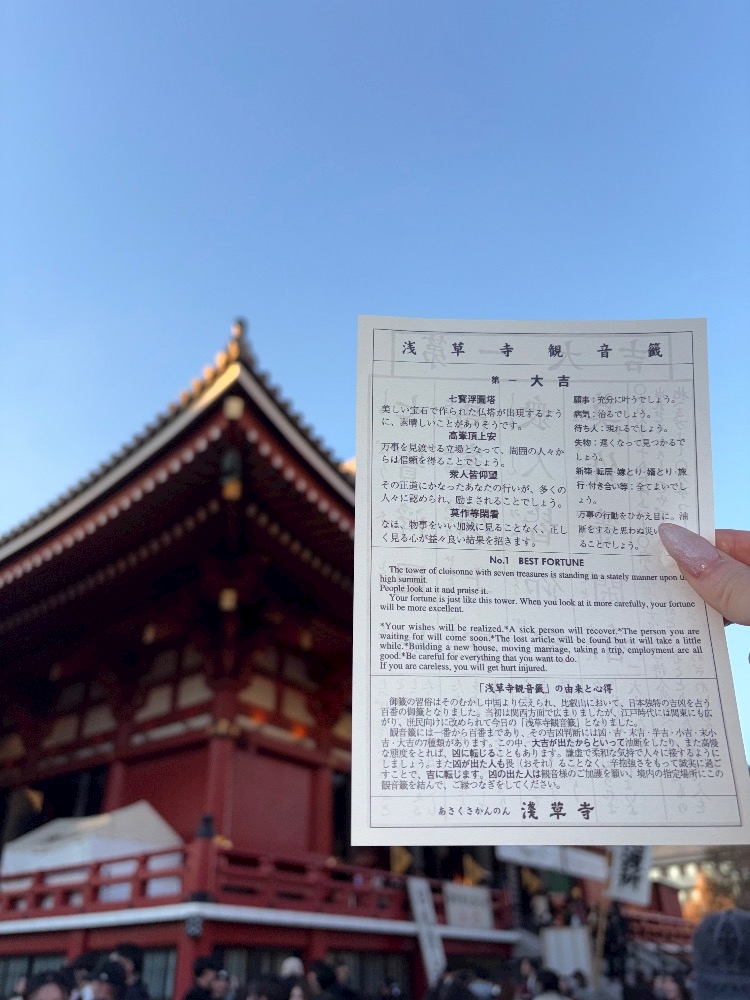 浅草寺観音籤
第一 大吉
七寳浮圖塔
美しい宝石で作られた仏塔が出現するよう
に、素晴しいことがありそうです。
高峯頂上安
万事を見渡せる立場となって、周囲の人々か
らは信頼を得ることでしょう。
衆人皆仰望
その正道にかなったあなたの行いが、多くの
人々に認められ、励まされることでしょう。
莫作等閑看
なほ、物事をいい加減に見ることなく、正し
く見る心が益々良い結果を招きます。
願事：充分に叶うでしょう。
病気：治るでしょう。
待ち人：現れるでしょう。
失物：遅くなって見つかるで
しょう。
新築・転居・嫁とり・婿とり・旅
行・付き合い等：全てよいでし
ょう。
万事の行動をひかえ目に。油
断をすると思わぬ災い
ることでしょう。
No.1 BEST FORTUNE
The tower of cloisonne with seven treasures is standing in a stately manner upon
high summit.
People look at it and praise it.
Your fortune is just like this tower. When you look at it more carefully, your fortune
will be more excellent.
*Your wishes will be realized.*A sick person will recover.*The person you are
waiting for will come soon.*The lost article will be found but it will take a little
while.*Building a new house, moving marriage, taking a trip, employment are all
good.*Be careful for everything that you want to do.
If you are careless, you will get hurt injured.
「浅草寺観音籤」の由来と心得
御籤の習俗はそのむかし中国より伝えられ、比叡山において、日本独特の吉凶を占う
百番の御籤となりました。当初は関西方面で広まりましたが、江戸時代には関東にも広
がり、庶民向けに改められて今日の「浅草寺観音籤」となりました。
観音籤には一番から百番まであり、その吉凶判断には凶・吉・末吉・半吉・小吉・末小
吉・大吉の7種類があります。この中、大吉が出たからといって油断をしたり、また高慢
な態度をとれば、凶に転じることもあります。謙虚で柔和な気持で人々に接するように
しましょう。また凶が出た人も畏（おそれ）ることなく、辛抱強さをもって誠実に過ご
すことで、吉に転じます。凶の出た人は観音様のご加護を願い、境内の指定場所にこの
観音籤を結んで、ご縁つなぎをしてください。
あさくさかんのん 淺草寺